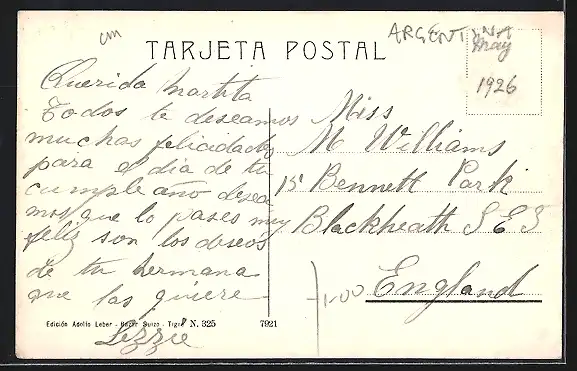 cm
ARGENTINA
TARJETA POSTAL
May
1926
Querida Martita
Todos te deseamos
muchas felicidades
para el dia de tu
cumpleaño desea
mos que lo pases muy
feliz son los deseos
de tu hermana
que las quiere
Lizzie
Miss
M Williams
15 Bennett Park
Blackheath S E 3
England
1-00
Edición Adolfo Leber - Bazar Suizo - Tigre N. 325
7921